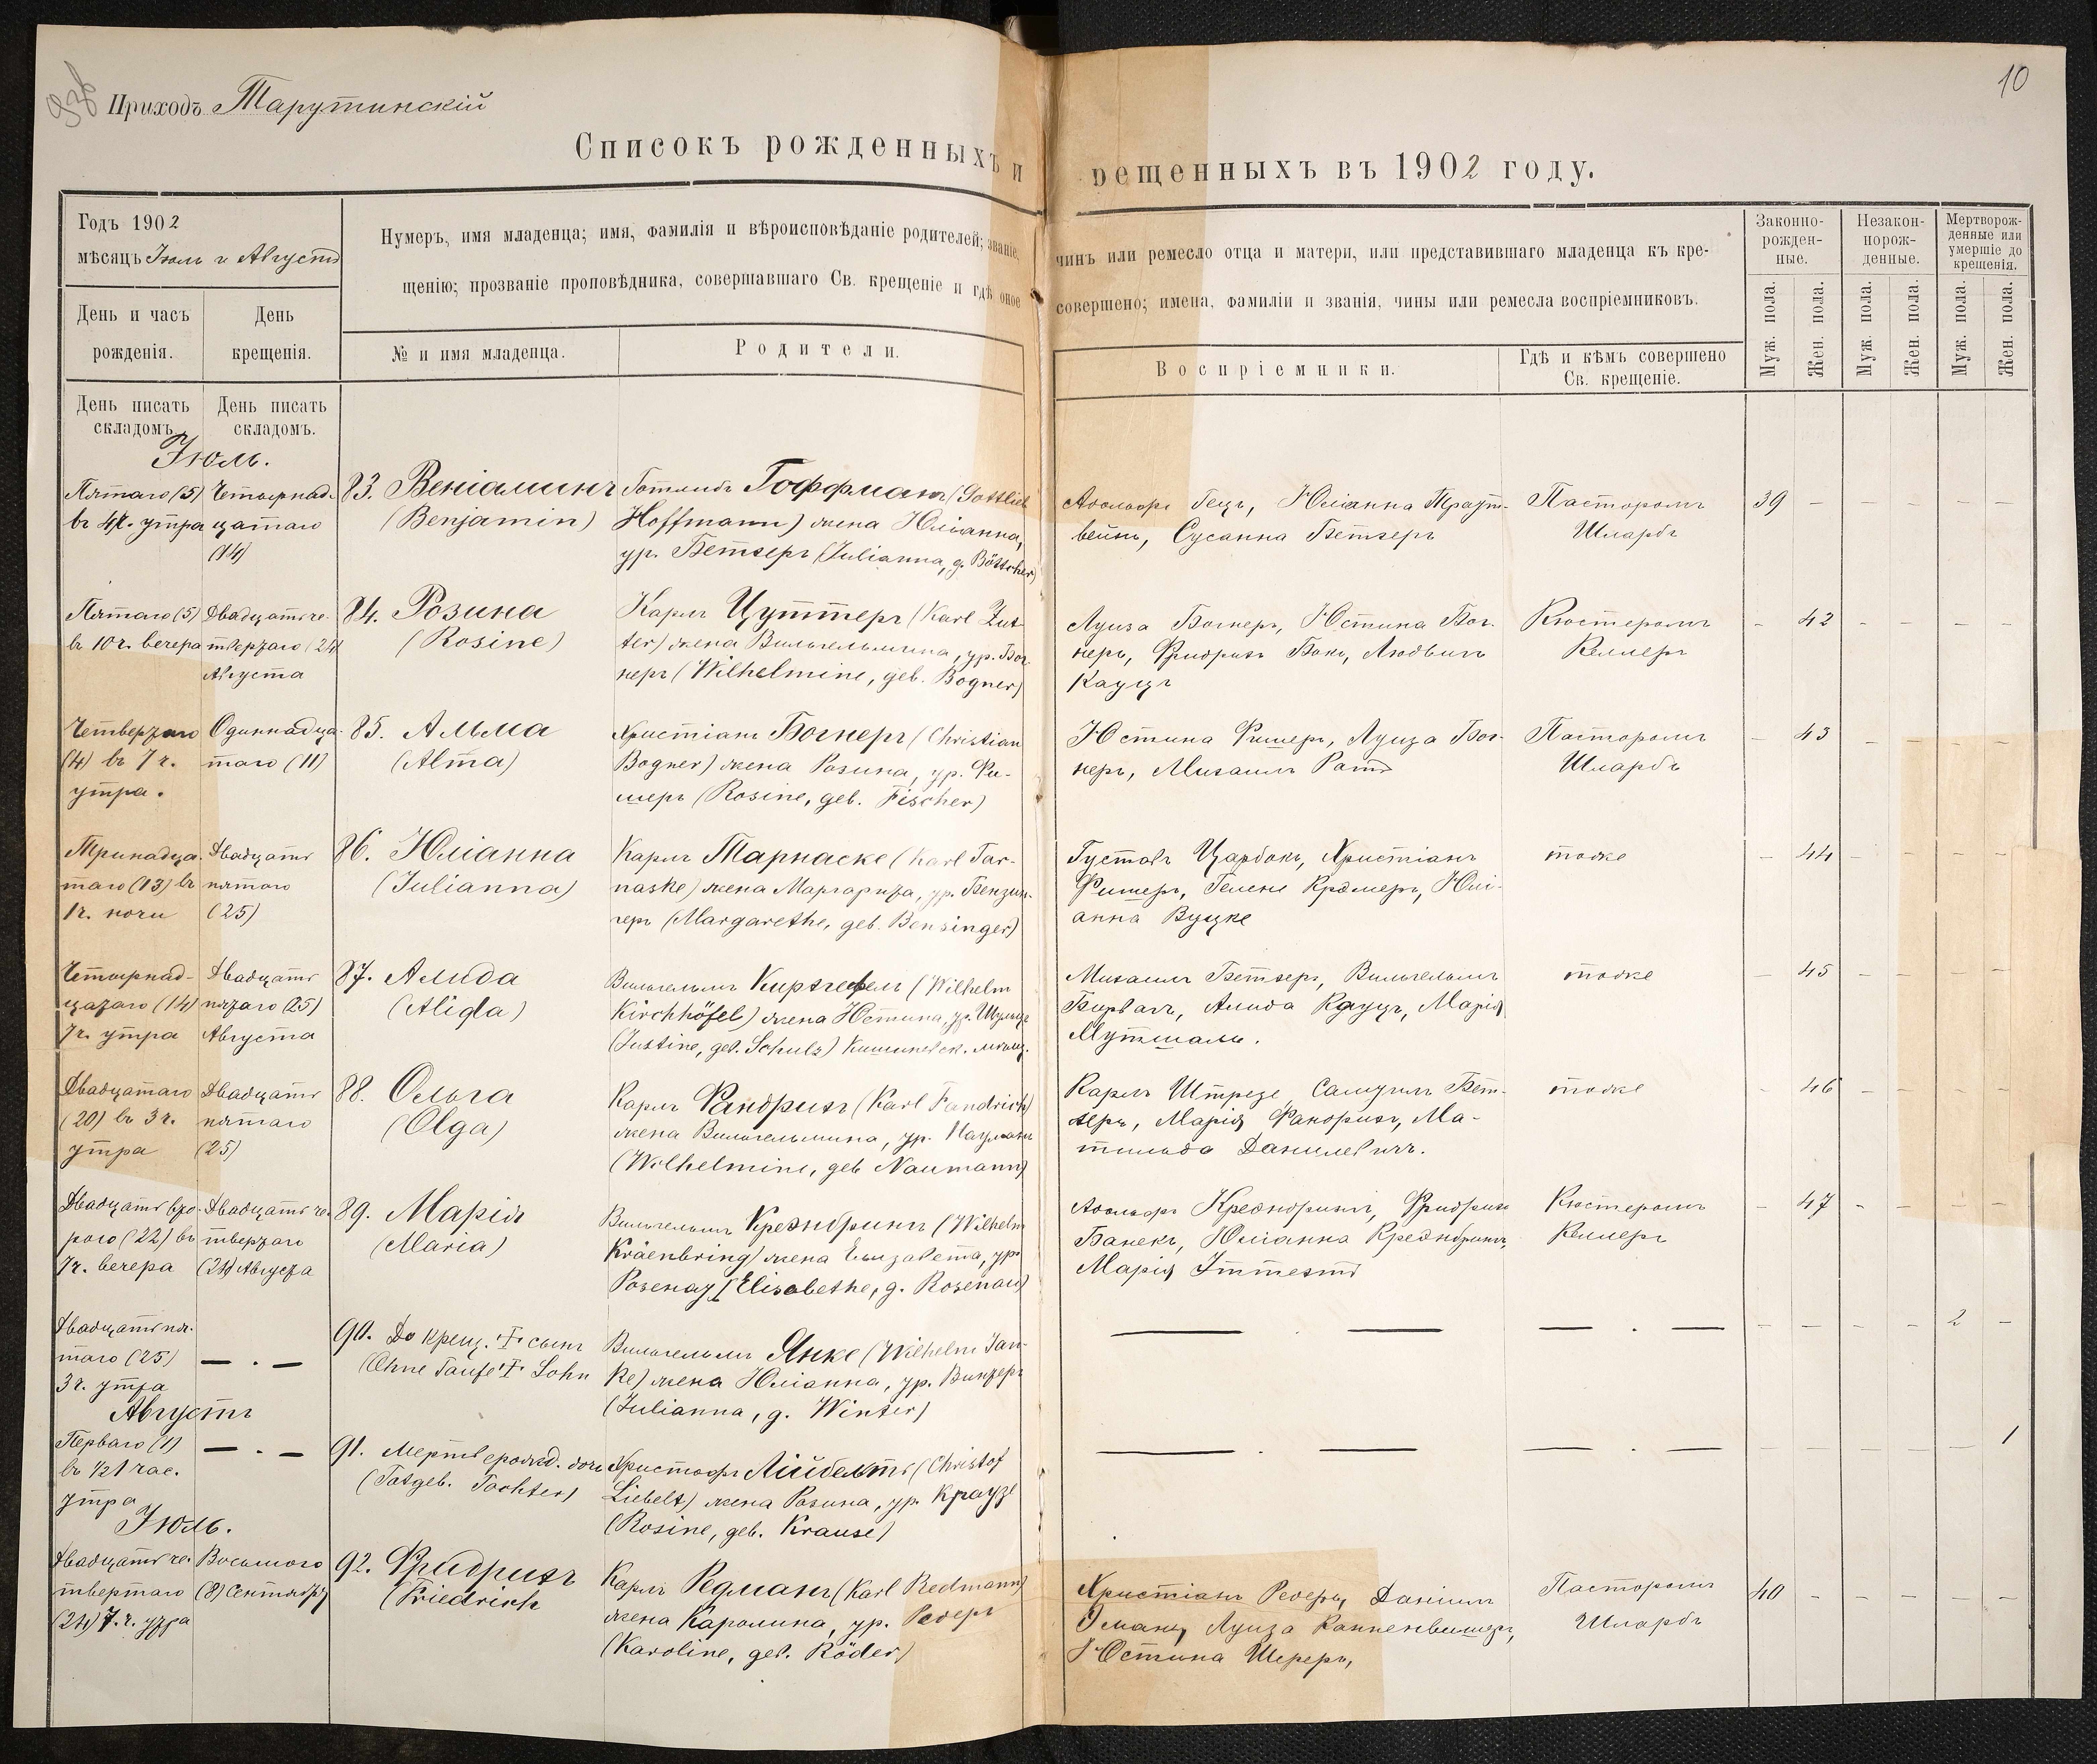 Приходъ Тарутинскій
10
Списокъ рожденныхъ и
рещенныхъ въ 1902 году.
Годъ 1902
мѣсяцъ Іюль и Августъ
Нумеръ, имя младенца; имя, фамилія и вѣроисповѣданіе родителей; званіе,
щенію; прозваніе проповѣдника, совершавшаго Св. крещеніе и гдѣ оное
чинъ или ремесло отца и матери, или представившаго младенца къ кре-
совершено; имена, фамиліи и званія, чины или ремесла воспріемниковъ.
Законно-
рожден-
ные.
Незакон-
норож-
денные.
Мертворож-
денные или
умершіе до
крещенія.
Муж. пола.
Жен. пола.
Муж. пола.
Жен. пола.
Муж. пола.
Жен. пола.
День и часъ
рожденія.
День
крещенія.
№ и имя младенца.
Родители.
Воспріемники.
Гдѣ и кѣмъ совершено
Св. крещеніе.
День писать
складомъ.
День писать
складомъ.
Іюль.
Пятаго (5)
въ 4 ч. утра
Четырнад-
цатаго
(14)
83. Веніаминъ
(Benjamin)
Готлибъ Гоффманъ (Gottlieb
Hoffmann) жена Юліанна,
ур. Бетхеръ (Julianna, g. Böttcher)
Адольфъ Гецъ, Юліанна Траут-
вейнъ, Сусанна Бетхеръ
Пасторомъ
Шлардъ
39 – – – – –
Пятаго (5)
въ 10 ч. вечера
Двадцать че-
твертаго (24)
Августа
84. Розина
(Rosine)
Карлъ Цуттеръ (Karl Zut-
ter) жена Вильгельмина, ур. Бог-
неръ (Wilhelmine, geb. Bogner)
Луиза Богнеръ, Юстина Бог-
неръ, Фридрихъ Бокъ, Людвигъ
Кауцъ
Кюстеромъ
Келлеръ
– 42 – – – –
Четвертаго
(4) въ 7 ч.
утра.
Одиннадца-
таго (11)
85. Альма
(Alma)
Христіанъ Богнеръ (Christian
Bogner) жена Розина, ур. Фи-
шеръ (Rosine, geb. Fischer)
Юстина Фишеръ, Луиза Бог-
неръ, Михаилъ Ратъ
Пасторомъ
Шлардъ
– 43 – – – –
Тринадца-
таго (13) въ
1 ч. ночи
Двадцать
пятаго
(25)
86. Юліанна
(Julianna)
Карлъ Тарнаске (Karl Tar-
naske) жена Маргарита, ур. Бензин-
геръ (Margarethe, geb. Bensinger)
Густавъ Царбокъ, Христіанъ
Фишеръ, Гелене Кремеръ, Юлі-
анна Вуцке
тоже
– 44 – – – –
Четырнад-
цатаго (14)
7 ч. утра
Двадцать
пятаго (25)
Августа
87. Алида
(Alida)
Вильгельмъ Кирхгефель (Wilhelm
Kirchhöfel) жена Юстина, ур. Шульцъ
(Justine, geb. Schulz) Кишиневск. мѣщ.
Михаилъ Бетхеръ, Вильгельмъ
Бирвагъ, Алида Кауцъ, Марія
Мутшаль.
тоже
– 45 – – – –
Двадцатаго
(20) въ 3 ч.
утра
Двадцать
пятаго
(25)
88. Ольга
(Olga)
Карлъ Фандрихъ (Karl Fandrich)
жена Вильгельмина, ур. Науманъ
(Wilhelmine, geb Naumann)
Карлъ Штрезе, Самуилъ Бет-
херъ, Марія Фандрихъ, Ма-
тильда Данилевичъ.
тоже
– 46 – – – –
Двадцать вто-
рого (22) въ
7 ч. вечера
Двадцать че-
твертаго
(24) Августа
89. Марія
(Maria)
Вильгельмъ Креэнбринъ (Wilhelm
Kräenbring) жена Елизавета, ур.
Розенау (Elisabethe, g. Rosenau)
Адольфъ Креэнбринъ, Фридрихъ
Банекъ, Юліанна Креэнбринъ,
Марія Иттехтъ
Кюстеромъ
Келлеръ
– 47 – – – –
Двадцать пя-
таго (25)
3 ч. утра
— . —
90. До крещ. † сынъ
(Ohne Taufe † Sohn
Вильгельмъ Янке (Wilhelm Jan-
ke) жена Юліанна, ур. Винтеръ
(Julianna, g. Winter)
— . —
— . —
– – – – 2 –
Августъ
Перваго (1)
въ ½1 час.
утра
— . —
91. Мертворожд. дочь
(Totgeb. Tochter)
Христофъ Лійбельтъ (Christof
Liebelt) жена Розина, ур. Краузе
(Rosine, geb. Krause)
— . —
— . —
– – – – – 1
Іюль.
Двадцать че-
твертаго
(24) 7 ч. утра
Восьмого
(8) Сентября
92. Фридрихъ
(Friedrich
Карлъ Редманъ (Karl Redmann)
жена Каролина, ур. Редеръ
(Karoline, geb. Röder)
Христіанъ Редеръ, Даніилъ
Эманъ, Луиза Канненвишеръ,
Юстина Шереръ,
Пасторомъ
Шлардъ
40 – – – – –